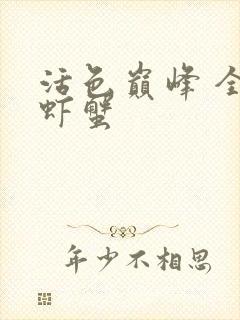 活色巅峰 全
虾蟹
年少不相思